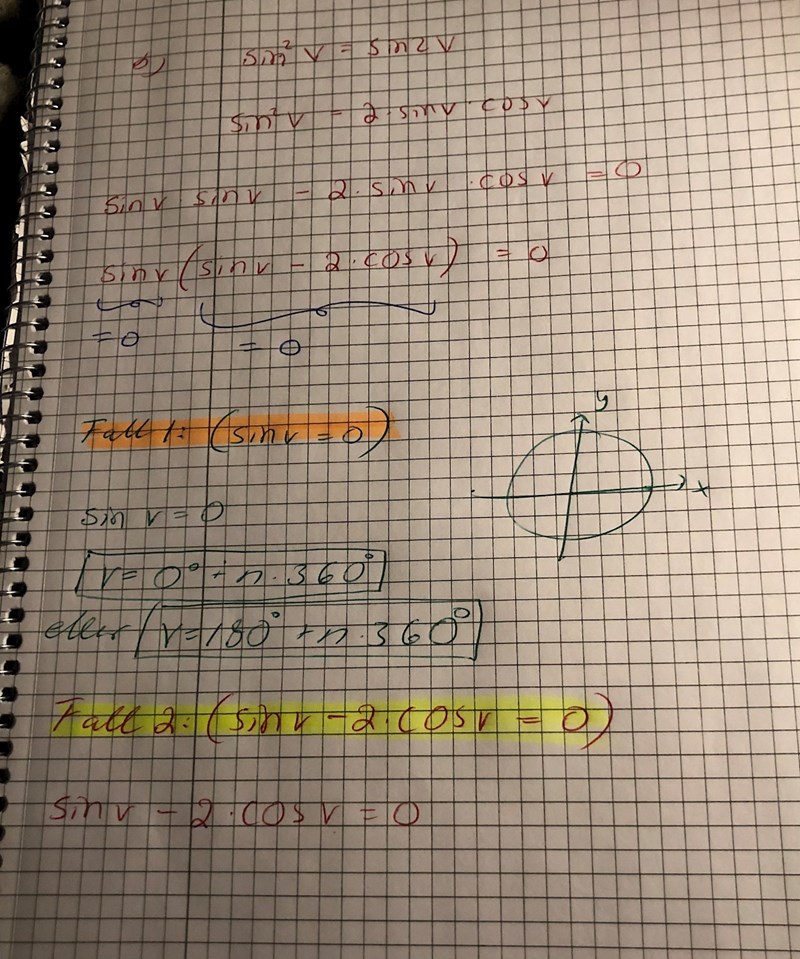 b) sin²v = sin2v
sin²v = 2·sinv·cosv
sinv sinv - 2·sinv·cosv = 0
sinv(sinv - 2·cosv) = 0
=0 = 0
Fall 1: (sinv = 0)
y
x
sin v = 0
v = 0° + n·360°
eller v = 180° + n·360°
Fall 2: (sinv - 2·cosv = 0)
sinv - 2·cosv = 0